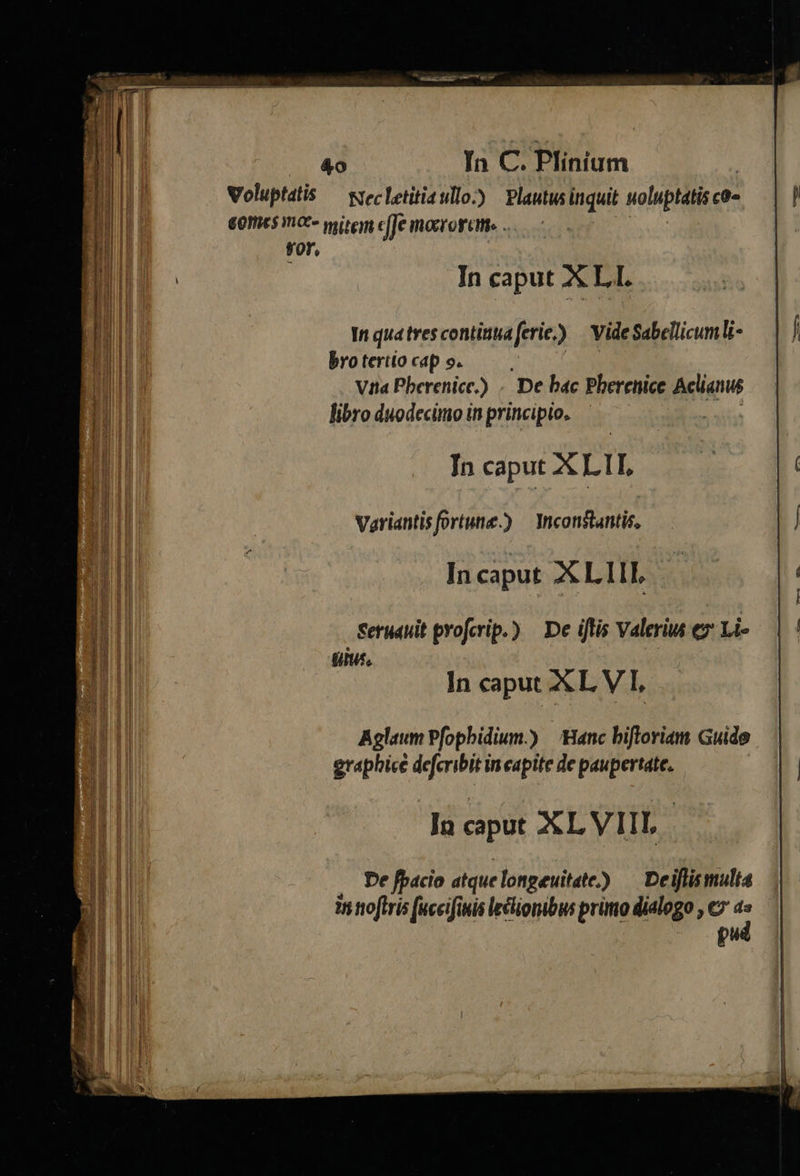 40 In C. Plinium
Voluptatis
comes mœ-
ror,
Nec letitia ullo.) Plautus inquit uoluptatis co-
mitem eſſe mœrorem.
In caput XLI.
In qua tres continua ſerie.) Vide Sabellicum li-
bro tertio cap 9.
Vna Pherenice.) De hac Pherenice Aelianus
libro duodecimo in principio.
In caput XLII.
Variantis fortunæ.) Inconſtantis.
In caput XLIII.
Seruauit proſcrip.) De iſtis Valerius & Li-
uius.
In caput XLVI.
Aglaum Pſophidium.) Hanc hiſtoriam Guido
graphicè deſcribit in capite de paupertate.
In caput XLVIII.
De ſpacio atque longæuitate.) De iſtis multa
in noſtris ſucciſiuis lectionibus primo dialogo , & a-
pud